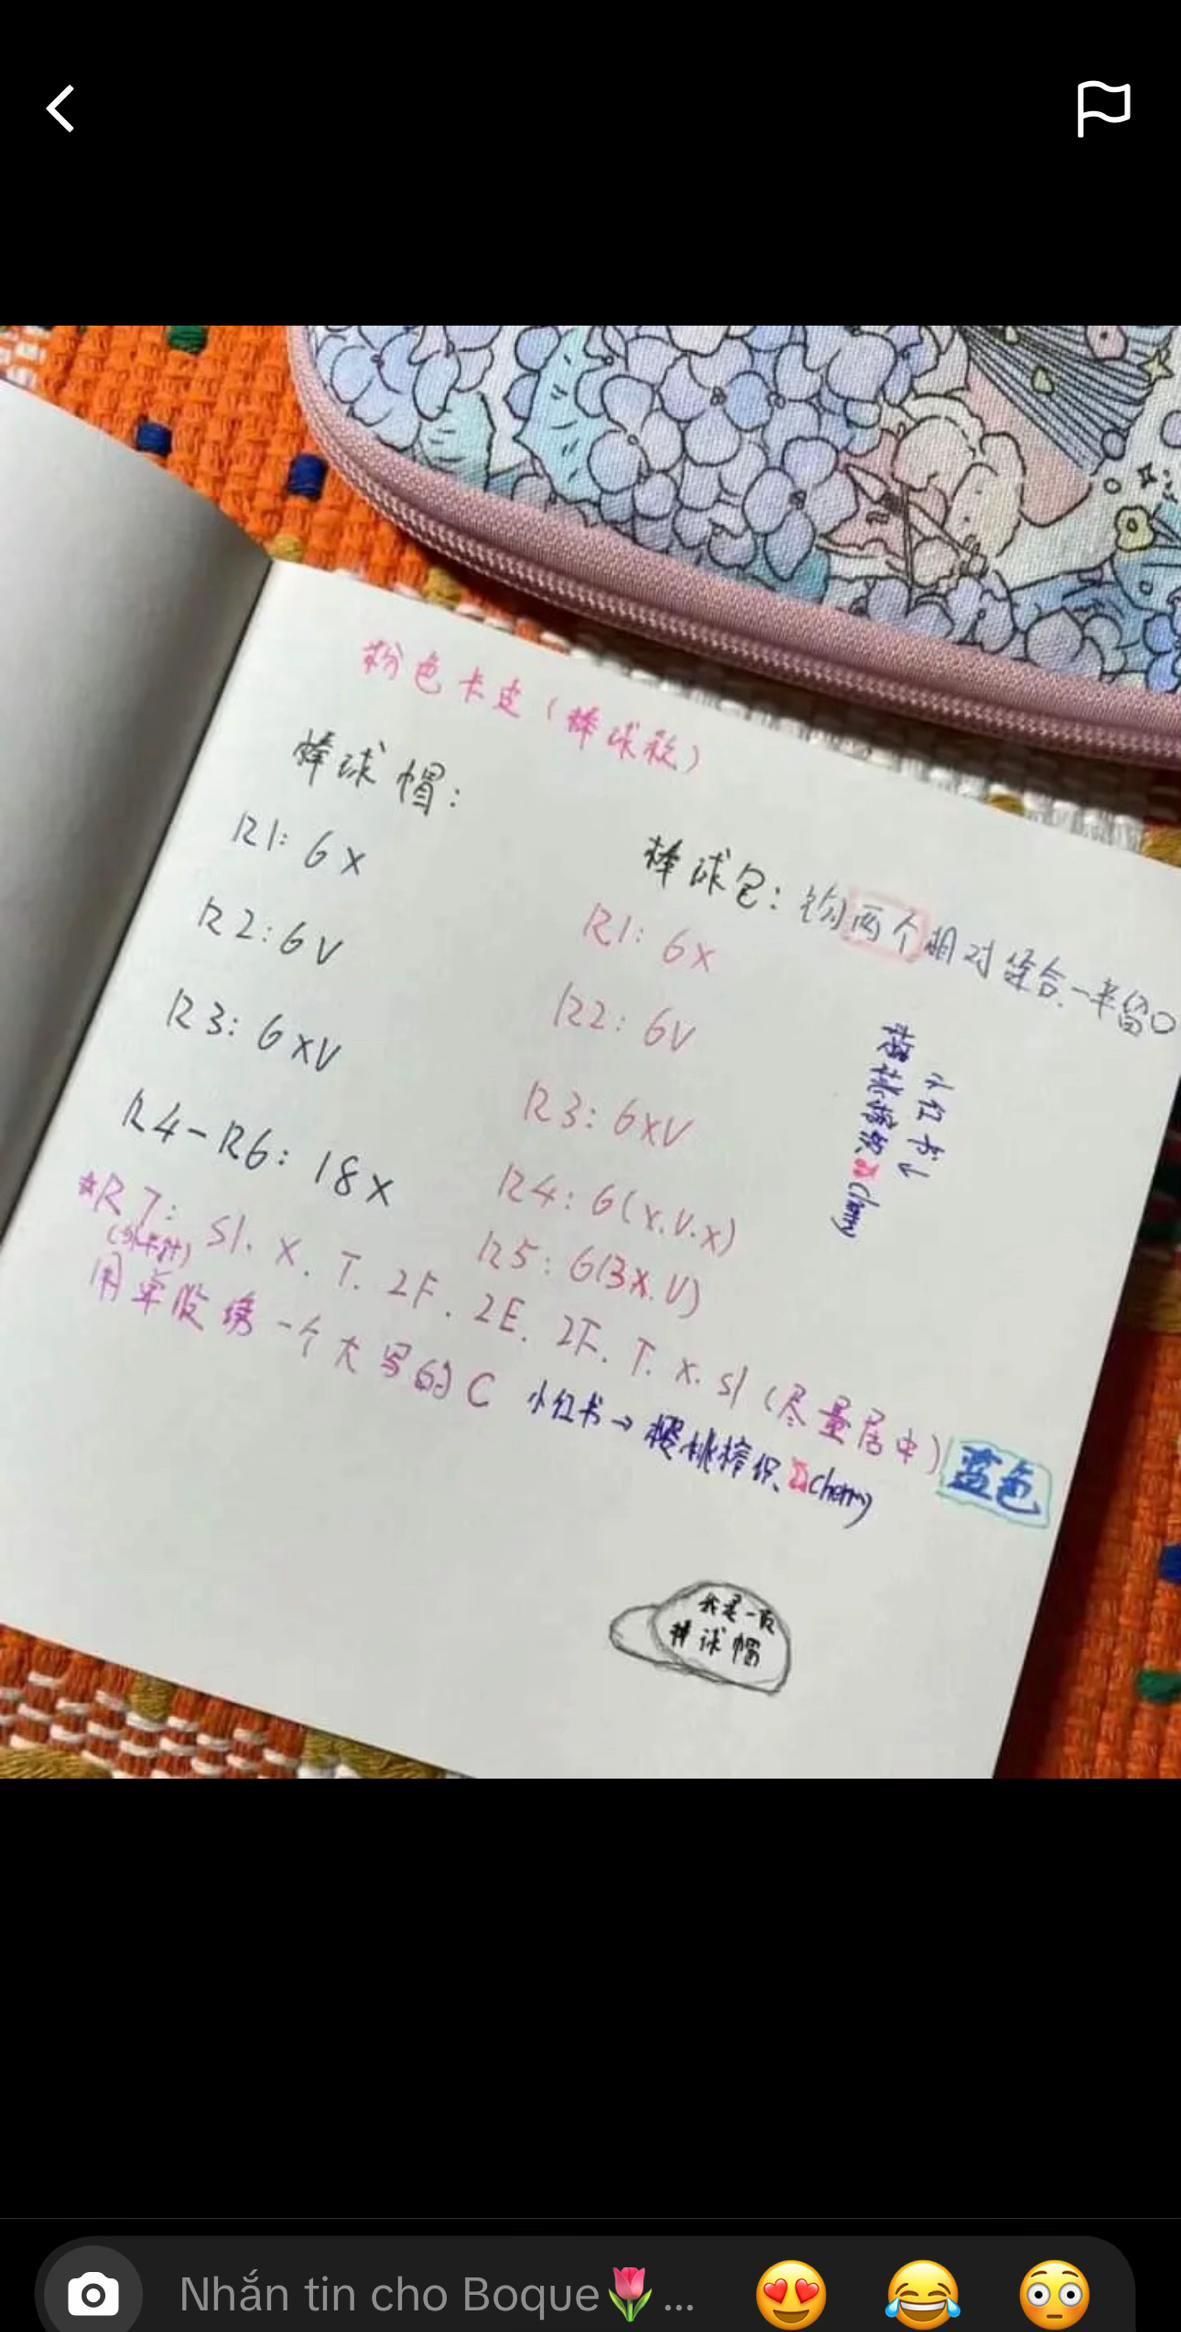 粉色卡皮(棒球款)
棒球帽:
R1: 6X
R2: 6V
R3: 6XV
R4-R6: 18X
棒球包: 钩两个相对缝合.一半留口
R1: 6X
R2: 6V
R3: 6XV
R4: 6(X.V.X)
R5: 6(3X.V)
小红书↓
樱桃榨织、cherry
*R7: Sl. X. T. 2F. 2E. 2F. T. X. Sl (尽量居中) 蓝色
用单股绣一个大写的C
小红书→樱桃榨织、cherry
我是一顶
棒球帽
Nhắn tin cho Boque🌷...